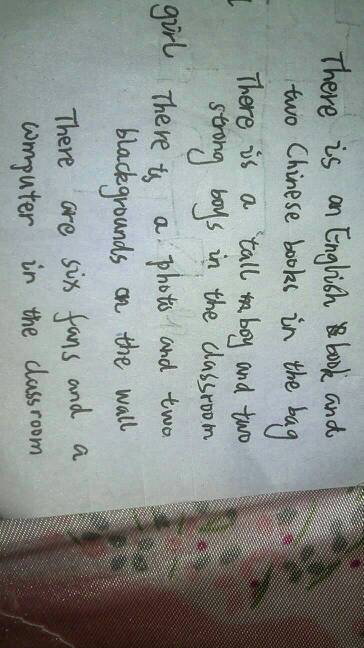 There is an English book and
two Chinese books in the bag
There is a tall boy and two
strong boys in the classroom
girl There is a photo and two
blackgrounds on the wall
There are six fans and a
computer in the classroom